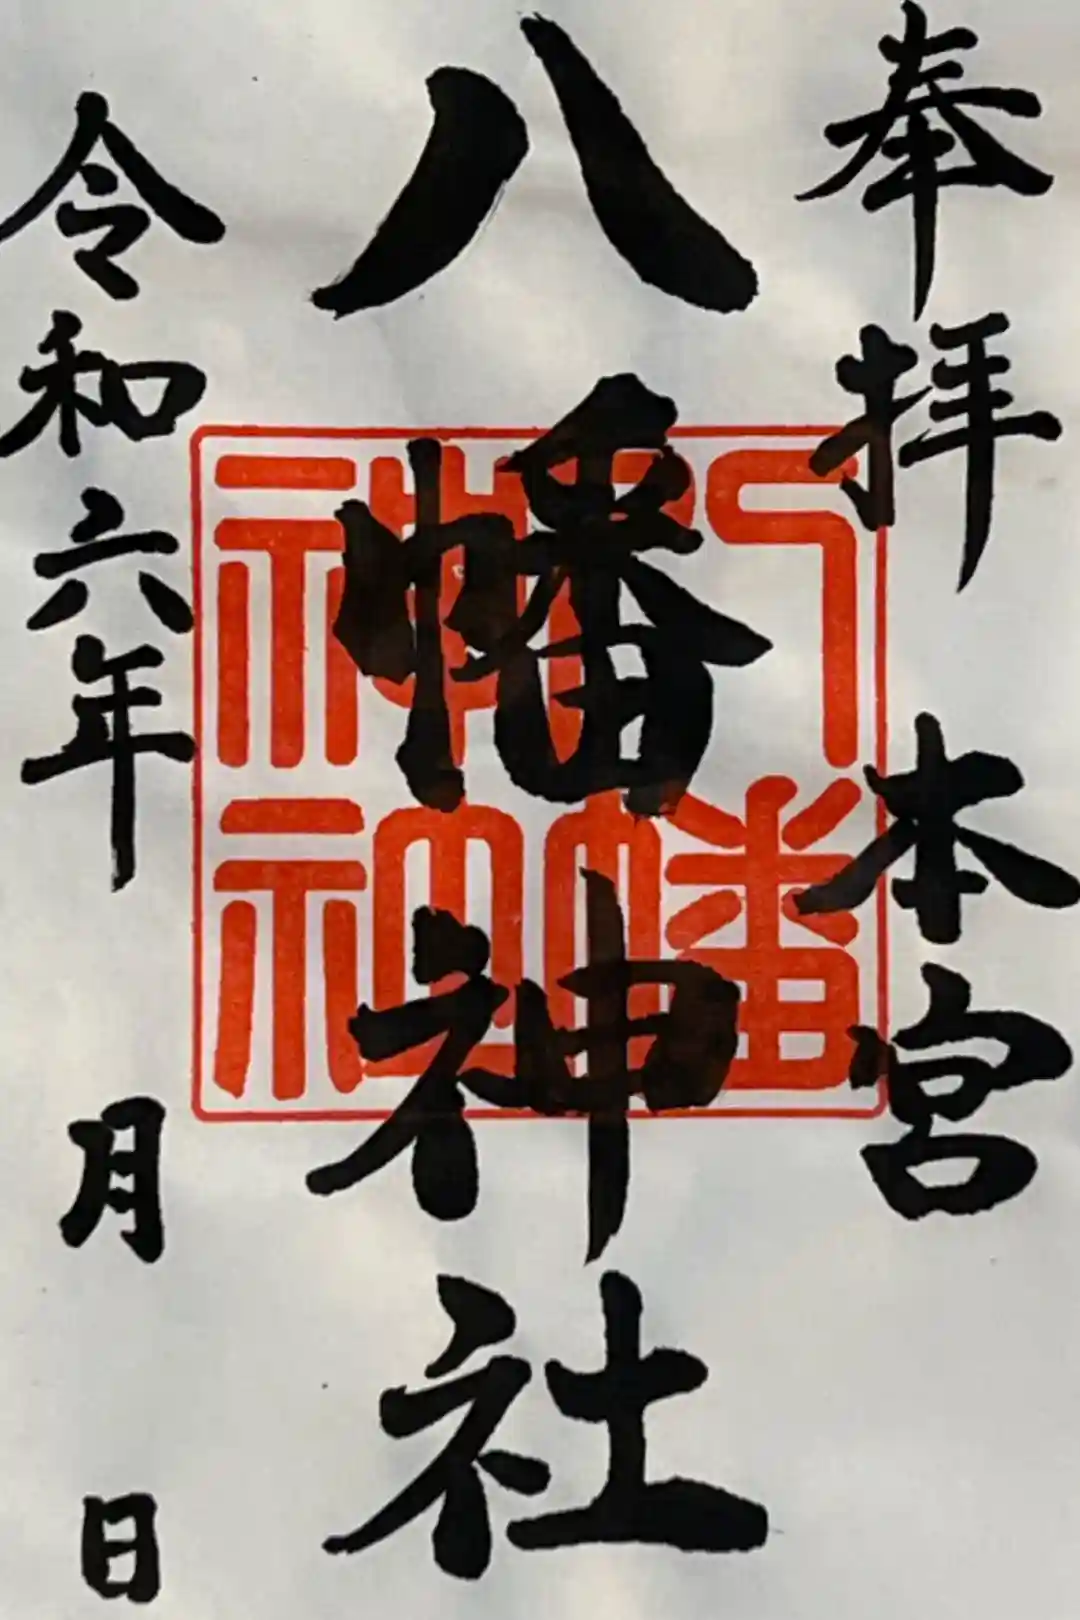 奉拝 本宮
八幡神社
令和六年 月 日
八幡
神社